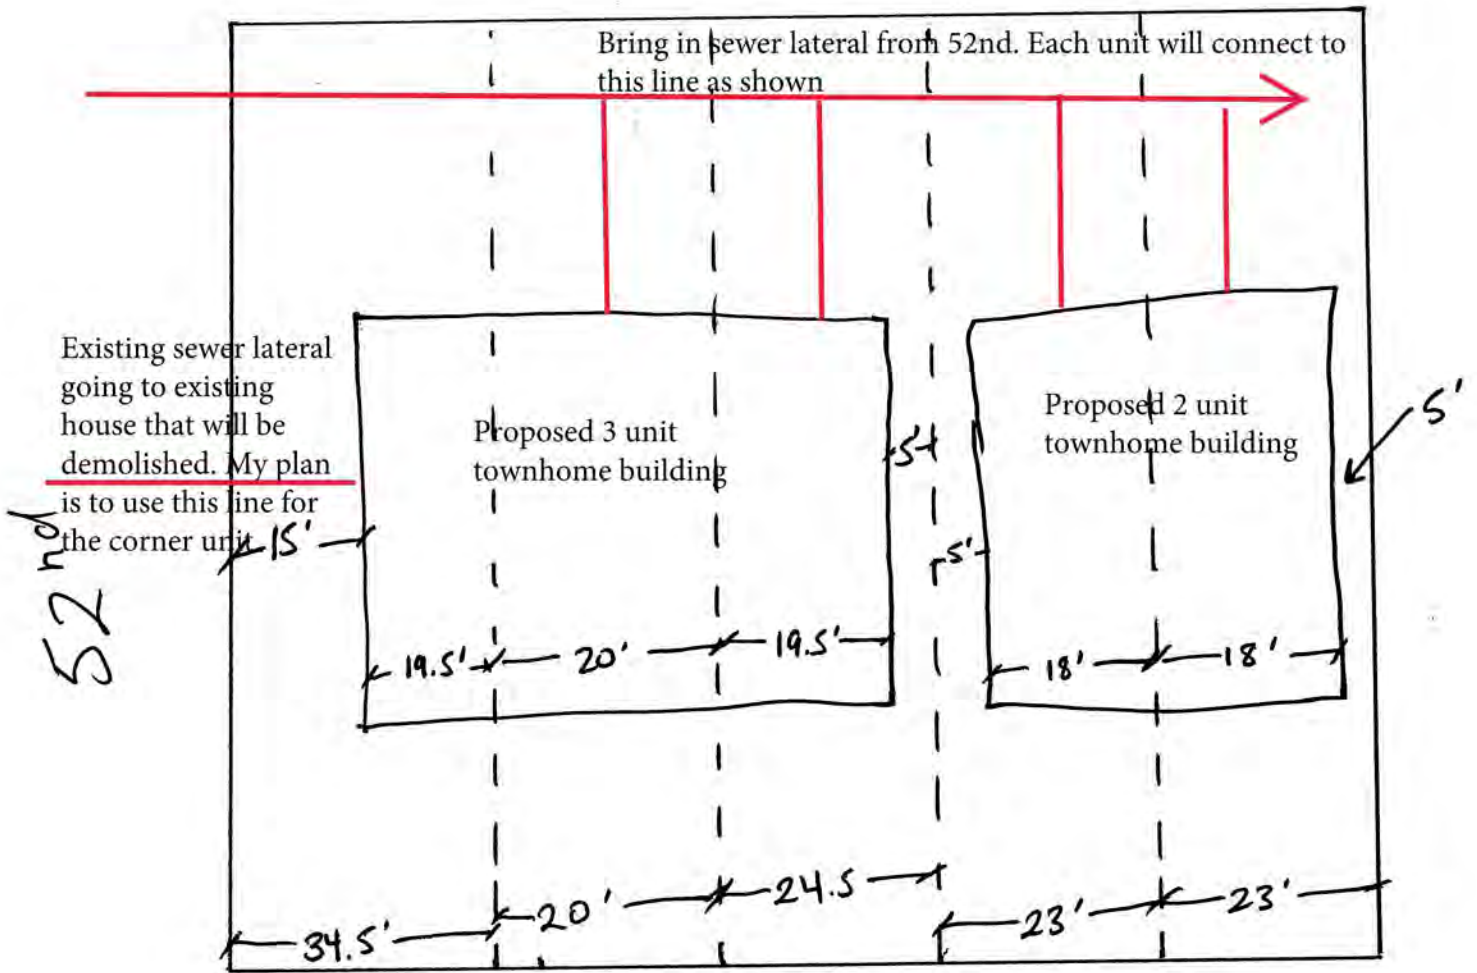 Bring in sewer lateral from 52nd. Each unit will connect to
this line as shown
Existing sewer lateral
going to existing
house that will be
demolished. My plan
is to use this line for
the corner unit
Proposed 3 unit
townhome building
Proposed 2 unit
townhome building
5'
5'
5'
15'
52nd
19.5'
20'
19.5'
18'
18'
34.5'
20'
24.5
23'
23'